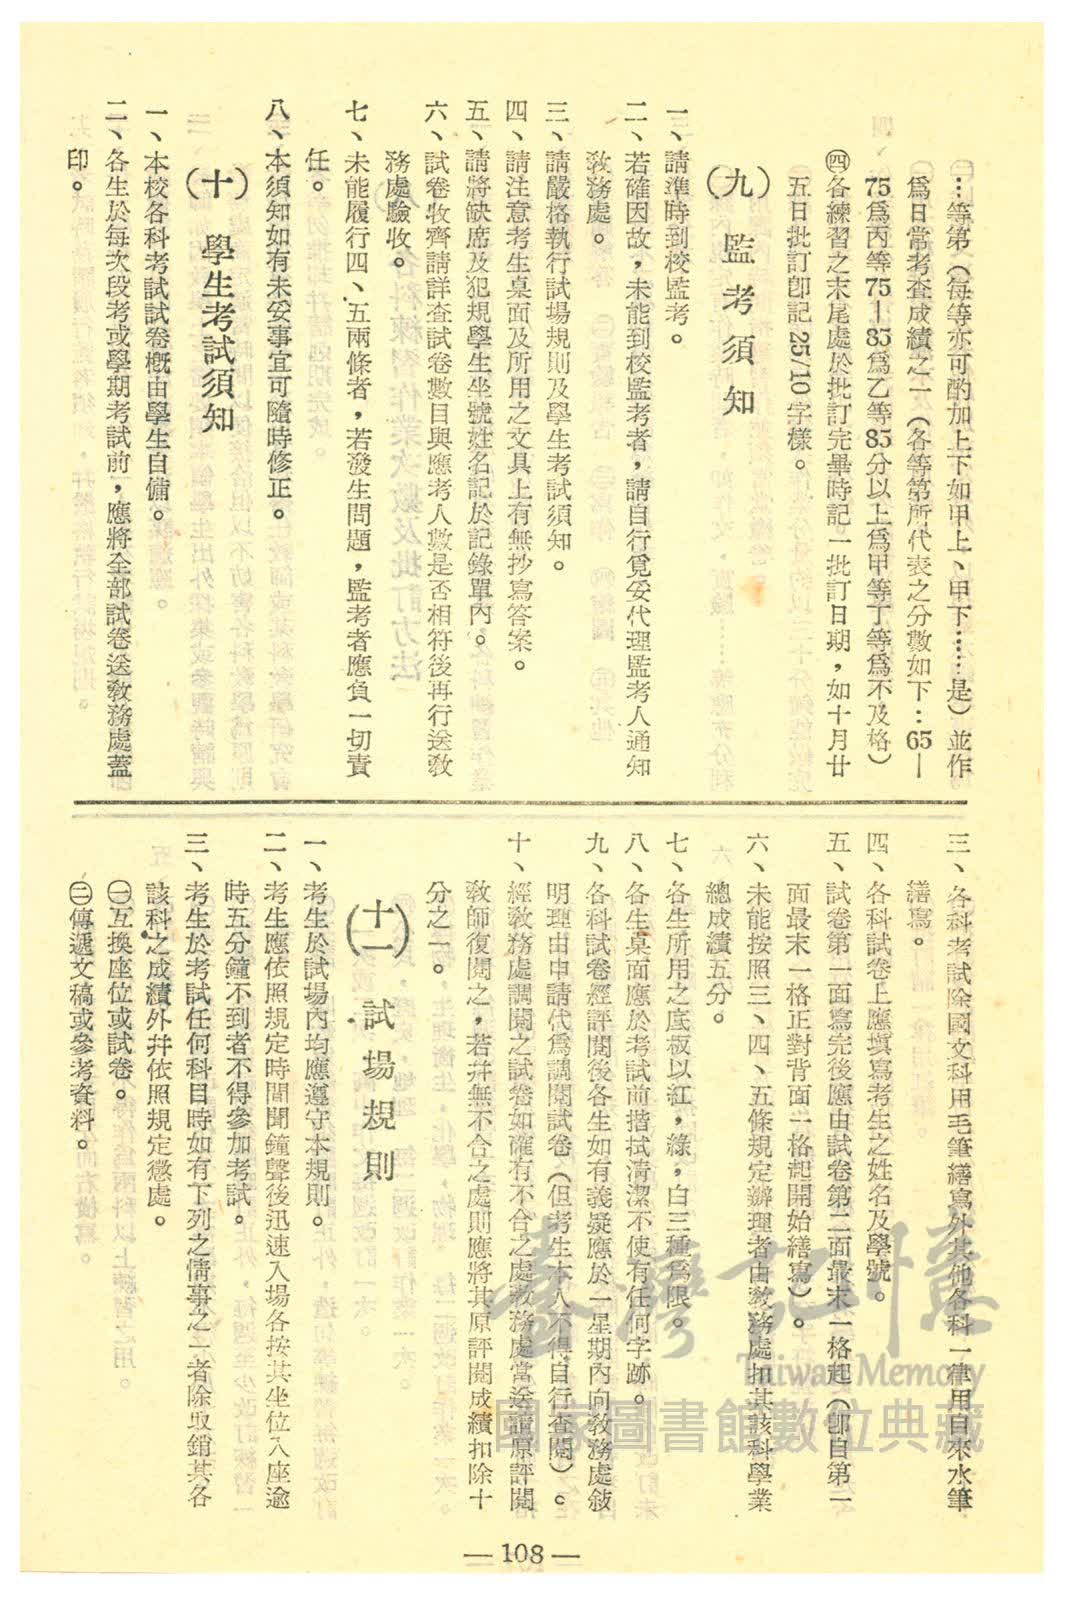 …等第（每等亦可酌加上下如甲上、甲下……是）並作
爲日常考查成績之一（各等第所代表之分數如下：65—
75爲丙等75—85爲乙等85分以上爲甲等丁等爲不及格）
㊃各練習之末尾處於批訂完畢時記一批訂日期，如十月廿
五日批訂卽記25/10字樣。
（九）監考須知
一、請準時到校監考。
二、若確因故，未能到校監考者，請自行覓妥代理監考人通知
敎務處。
三、請嚴格執行試場規則及學生考試須知。
四、請注意考生桌面及所用之文具上有無抄寫答案。
五、請將缺席及犯規學生坐號姓名記於記錄單內。
六、試卷收齊請詳查試卷數目與應考人數是否相符後再行送敎
務處驗收。
七、未能履行四、五兩條者，若發生問題，監考者應負一切責
任。
八、本須知如有未妥事宜可隨時修正。
（十）學生考試須知
一、本校各科考試試卷槪由學生自備。
二、各生於每次段考或學期考試前，應將全部試卷送敎務處蓋
印。
三、各科考試除國文科用毛筆繕寫外其他各科一律用自來水筆
繕寫。
四、各科試卷上應塡寫考生之姓名及學號。
五、試卷第一面寫完後應由試卷第二面最末一格起（卽自第一
面最末一格正對背面一格起開始繕寫）。
六、未能按照三、四、五條規定辦理者由敎務處扣其該科學業
總成績五分。
七、各生所用之底板以紅，綠，白三種爲限。
八、各生桌面應於考試前揩拭清潔不使有任何字跡。
九、各科試卷經評閱後各生如有義疑應於一星期內向敎務處敍
明理由申請代爲調閱試卷（但考生本人不得自行查閱）。
十、經敎務處調閱之試卷如確有不合之處敎務處當送請原評閱
敎師復閱之，若幷無不合之處則應將其原評閱成績扣除十
分之一。
（十一）試場規則
一、考生於試場內均應遵守本規則。
二、考生應依照規定時間聞鐘聲後迅速入場各按其坐位入座逾
時五分鐘不到者不得參加考試。
三、考生於考試任何科目時如有下列之情事之一者除取銷其各
該科之成績外幷依照規定懲處。
㊀互換座位或試卷。
㊁傳遞文稿或參考資料。
— 108 —
臺灣記憶
Taiwan Memory
國家圖書館數位典藏